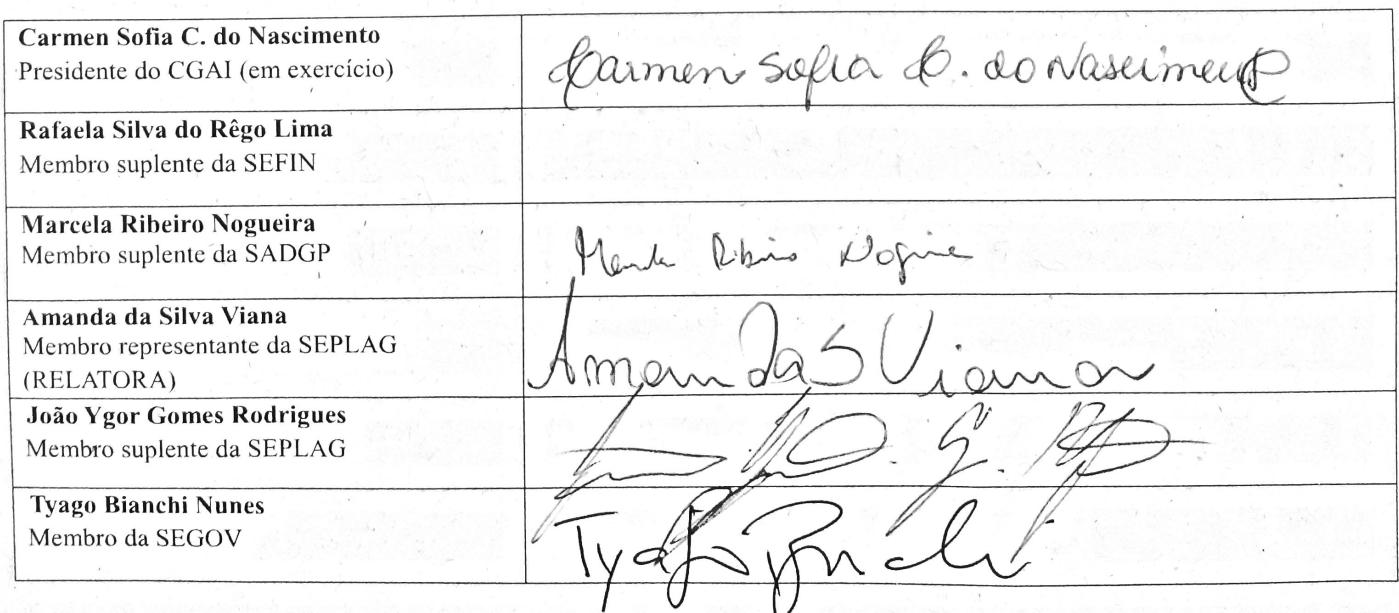 Carmen Sofia C. do Nascimento
Presidente do CGAI (em exercício)
Carmen Sofia C. do Nascimento
Rafaela Silva do Rêgo Lima
Membro suplente da SEFIN
Marcela Ribeiro Nogueira
Membro suplente da SADGP
Ribeiro
Amanda da Silva Viana
Membro representante da SEPLAG
(RELATORA)
Amanda S Viana
João Ygor Gomes Rodrigues
Membro suplente da SEPLAG
Tyago Bianchi Nunes
Membro da SEGOV
Tyago Bianchi